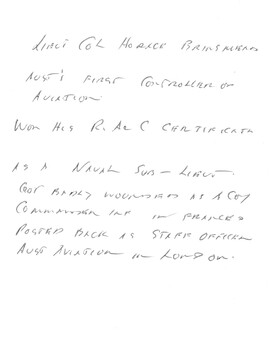 Lieut Col Horace Brinsmead
Aust's First Controller of
Aviation
Won His R.Ae C Certificate
As a Naval Sub-Lieut.
Got Badly wounded as a Coy
Commander Inf in France
Posted Back as Staff Officer
Aust Aviation in London.